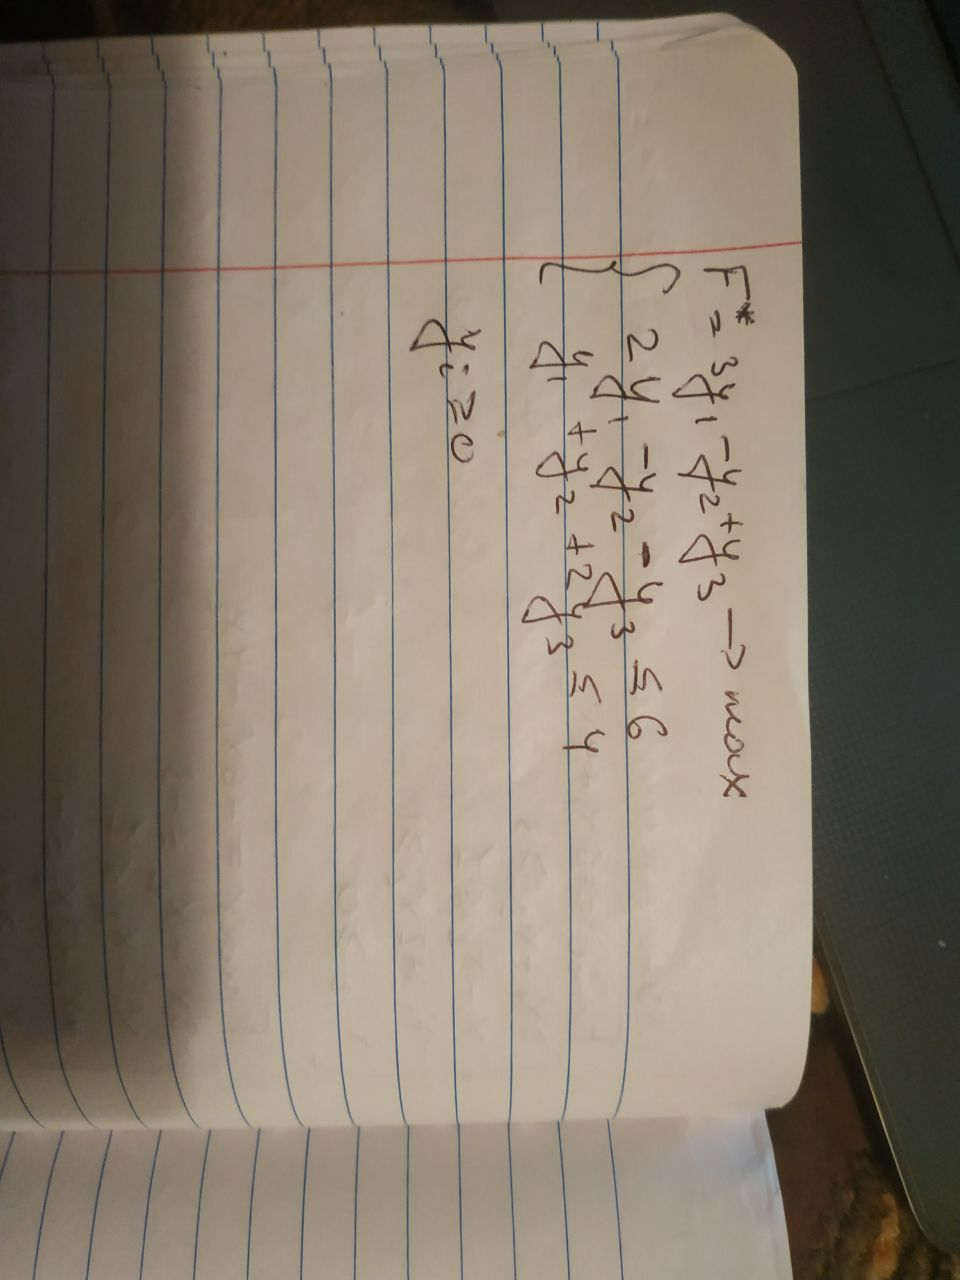 F* = 3y₁ - y₂ + y₃ → max
{ 2y₁ - y₂ - y₃ ≤ 6
y₁ + y₂ + 2y₃ ≤ 4
yᵢ ≥ 0